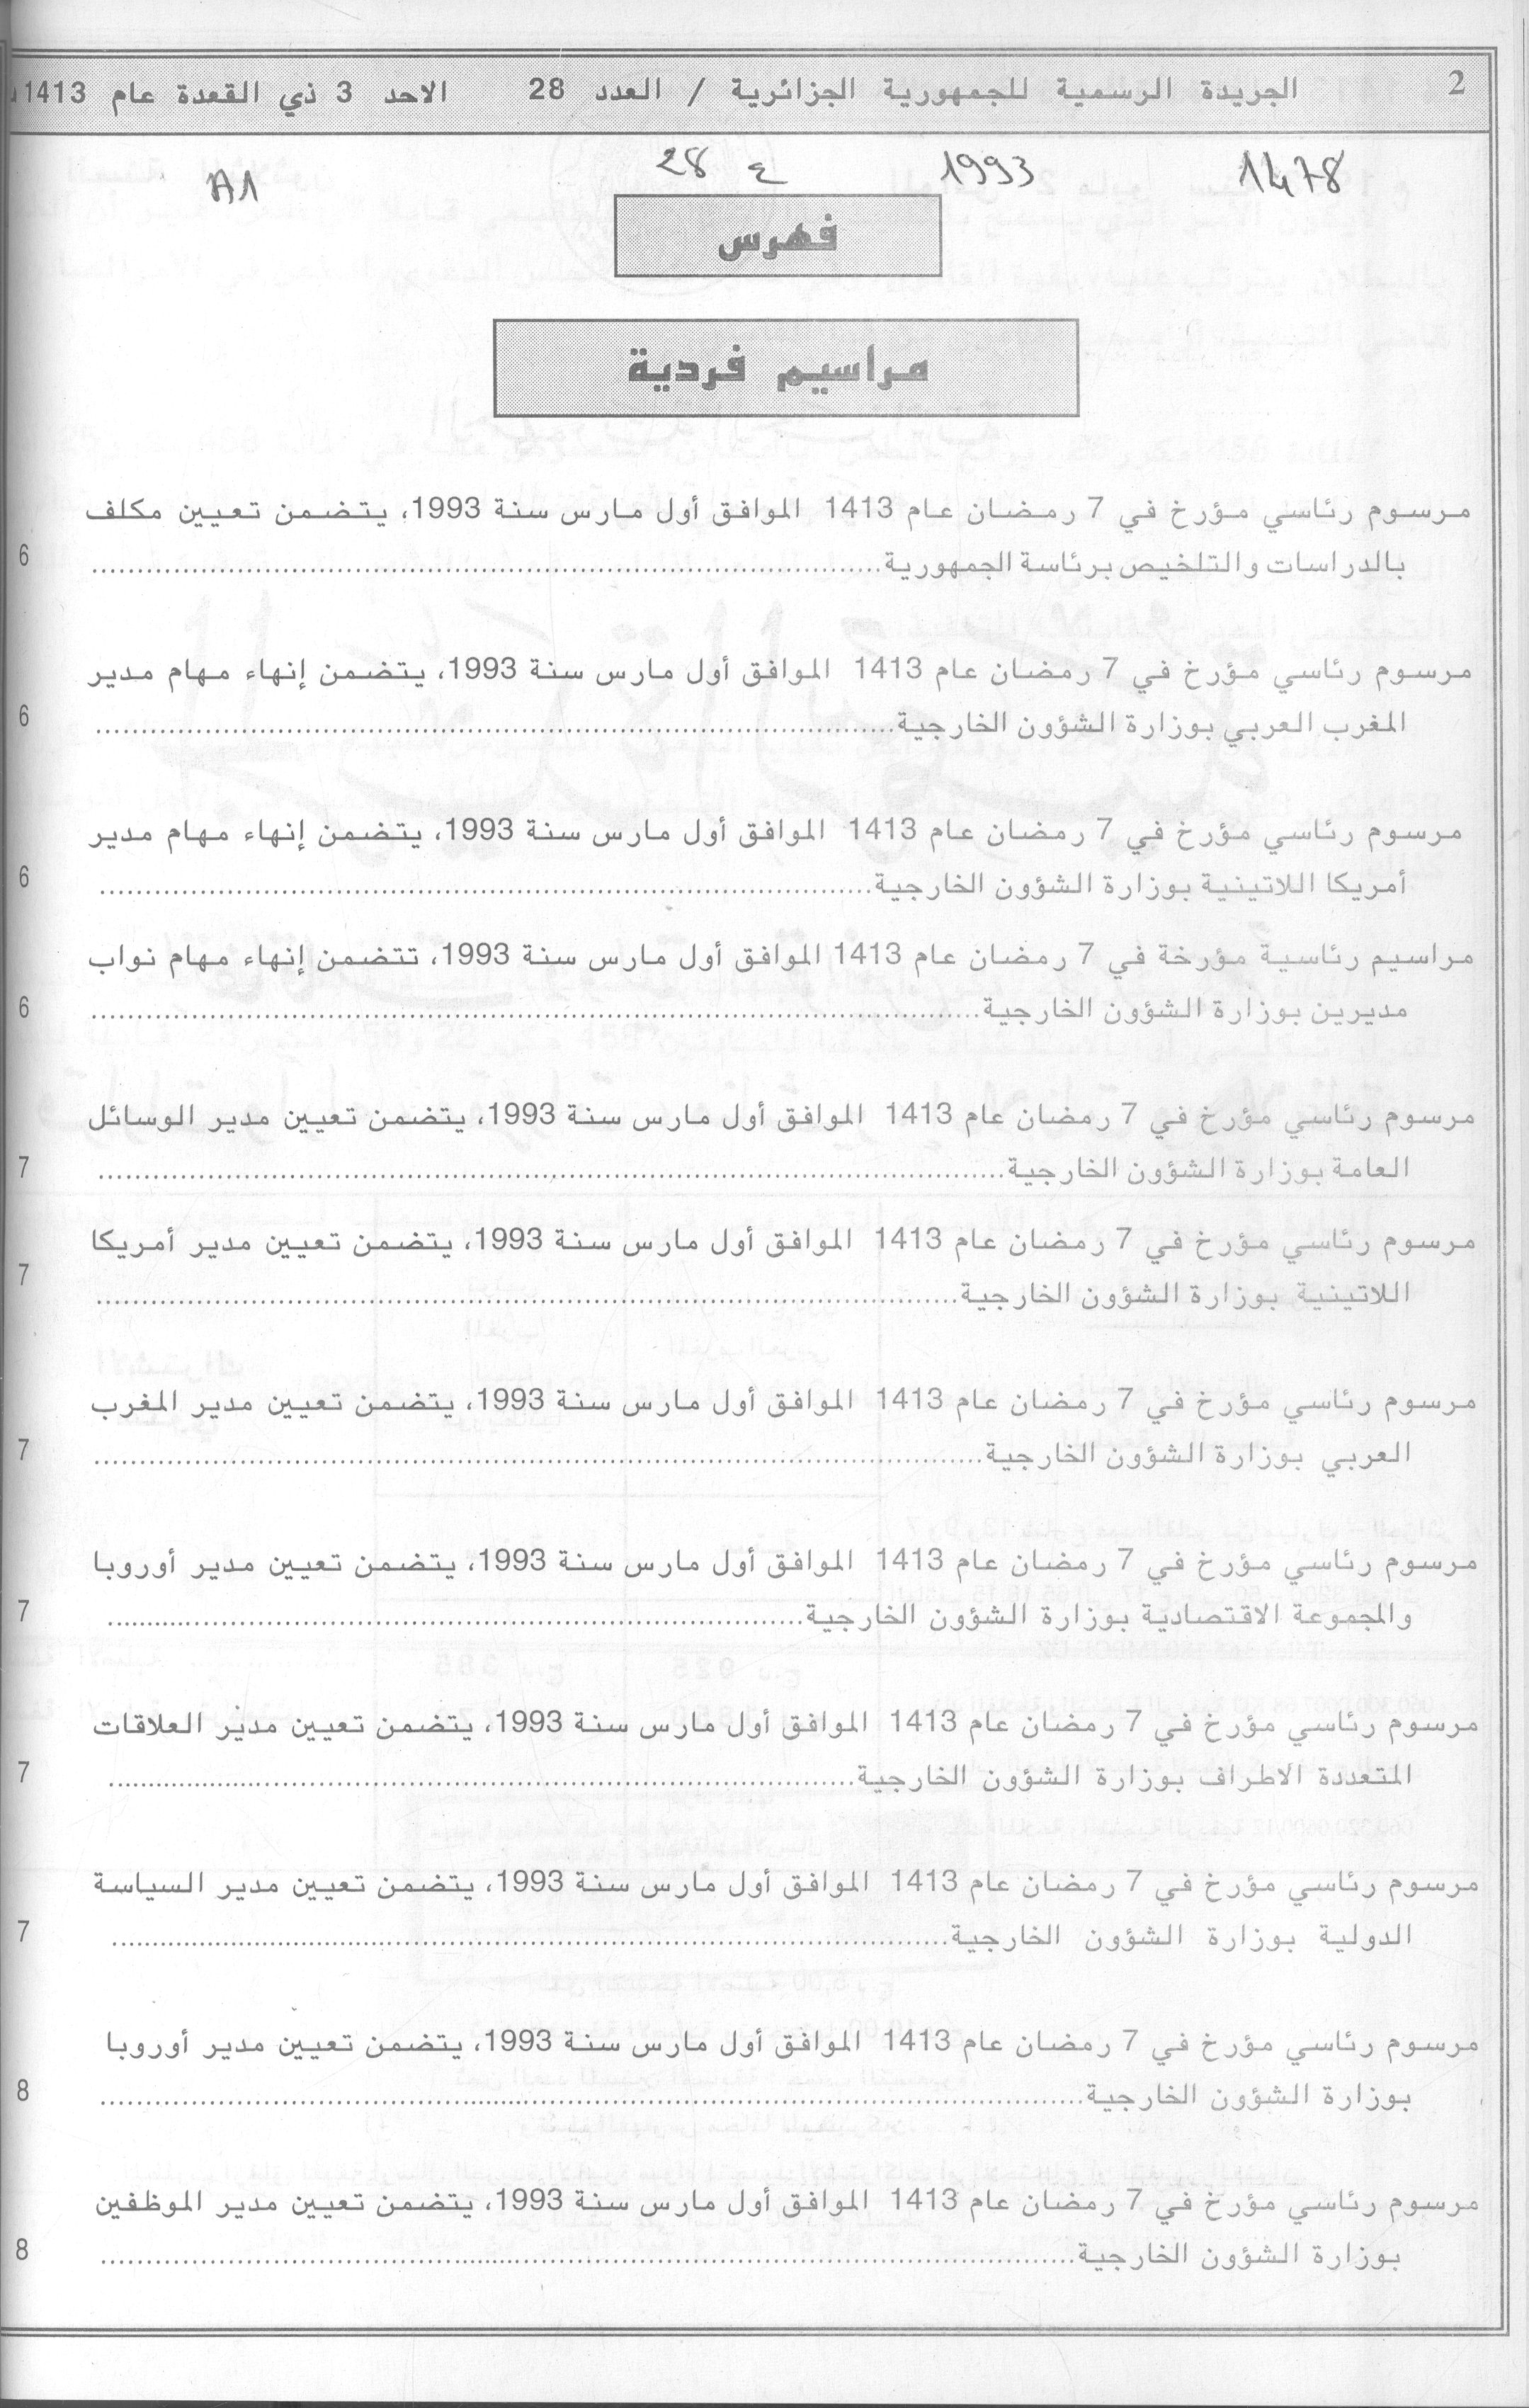 2 الجريدة الرسمية للجمهورية الجزائرية / العدد 28 الاحد 3 ذي القعدة عام 1413
1478 1993 ع 28 A1
فهرس
مراسيم فردية
مرسوم رئاسي مؤرخ في 7 رمضان عام 1413 الموافق أول مارس سنة 1993، يتضمن تعيين مكلف
بالدراسات والتلخيص برئاسة الجمهورية........ 6
مرسوم رئاسي مؤرخ في 7 رمضان عام 1413 الموافق أول مارس سنة 1993، يتضمن إنهاء مهام مدير
المغرب العربي بوزارة الشؤون الخارجية........ 6
مرسوم رئاسي مؤرخ في 7 رمضان عام 1413 الموافق أول مارس سنة 1993، يتضمن إنهاء مهام مدير
أمريكا اللاتينية بوزارة الشؤون الخارجية........ 6
مراسيم رئاسية مؤرخة في 7 رمضان عام 1413 الموافق أول مارس سنة 1993، تتضمن إنهاء مهام نواب
مديرين بوزارة الشؤون الخارجية........ 6
مرسوم رئاسي مؤرخ في 7 رمضان عام 1413 الموافق أول مارس سنة 1993، يتضمن تعيين مدير الوسائل
العامة بوزارة الشؤون الخارجية........ 7
مرسوم رئاسي مؤرخ في 7 رمضان عام 1413 الموافق أول مارس سنة 1993، يتضمن تعيين مدير أمريكا
اللاتينية بوزارة الشؤون الخارجية........ 7
مرسوم رئاسي مؤرخ في 7 رمضان عام 1413 الموافق أول مارس سنة 1993، يتضمن تعيين مدير المغرب
العربي بوزارة الشؤون الخارجية........ 7
مرسوم رئاسي مؤرخ في 7 رمضان عام 1413 الموافق أول مارس سنة 1993، يتضمن تعيين مدير أوروبا
والمجموعة الاقتصادية بوزارة الشؤون الخارجية........ 7
مرسوم رئاسي مؤرخ في 7 رمضان عام 1413 الموافق أول مارس سنة 1993، يتضمن تعيين مدير العلاقات
المتعددة الاطراف بوزارة الشؤون الخارجية........ 7
مرسوم رئاسي مؤرخ في 7 رمضان عام 1413 الموافق أول مارس سنة 1993، يتضمن تعيين مدير السياسة
الدولية بوزارة الشؤون الخارجية........ 7
مرسوم رئاسي مؤرخ في 7 رمضان عام 1413 الموافق أول مارس سنة 1993، يتضمن تعيين مدير أوروبا
بوزارة الشؤون الخارجية........ 8
مرسوم رئاسي مؤرخ في 7 رمضان عام 1413 الموافق أول مارس سنة 1993، يتضمن تعيين مدير الموظفين
بوزارة الشؤون الخارجية........ 8